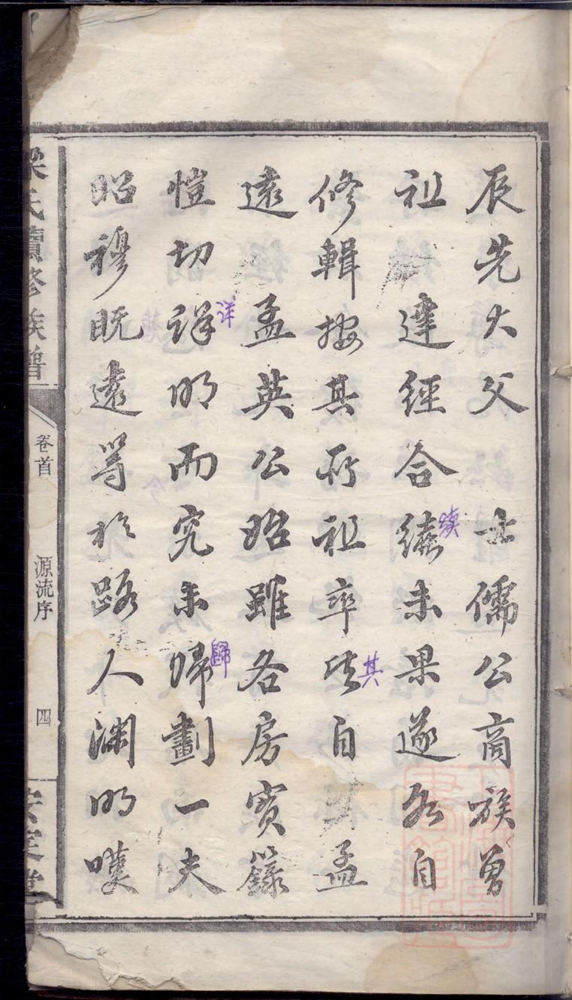 辰先大父 士儒公商族曾
祖 達經合續未果遂各自
修輯按其所祖率皆自 孟
遠 孟英公昭雖各房實錄
愷切詳明而究未歸劃一夫
昭穆既遠等於路人淵明嘆
续
其
详
歸
梁氏續修族譜
卷首
源流序
四
安定堂